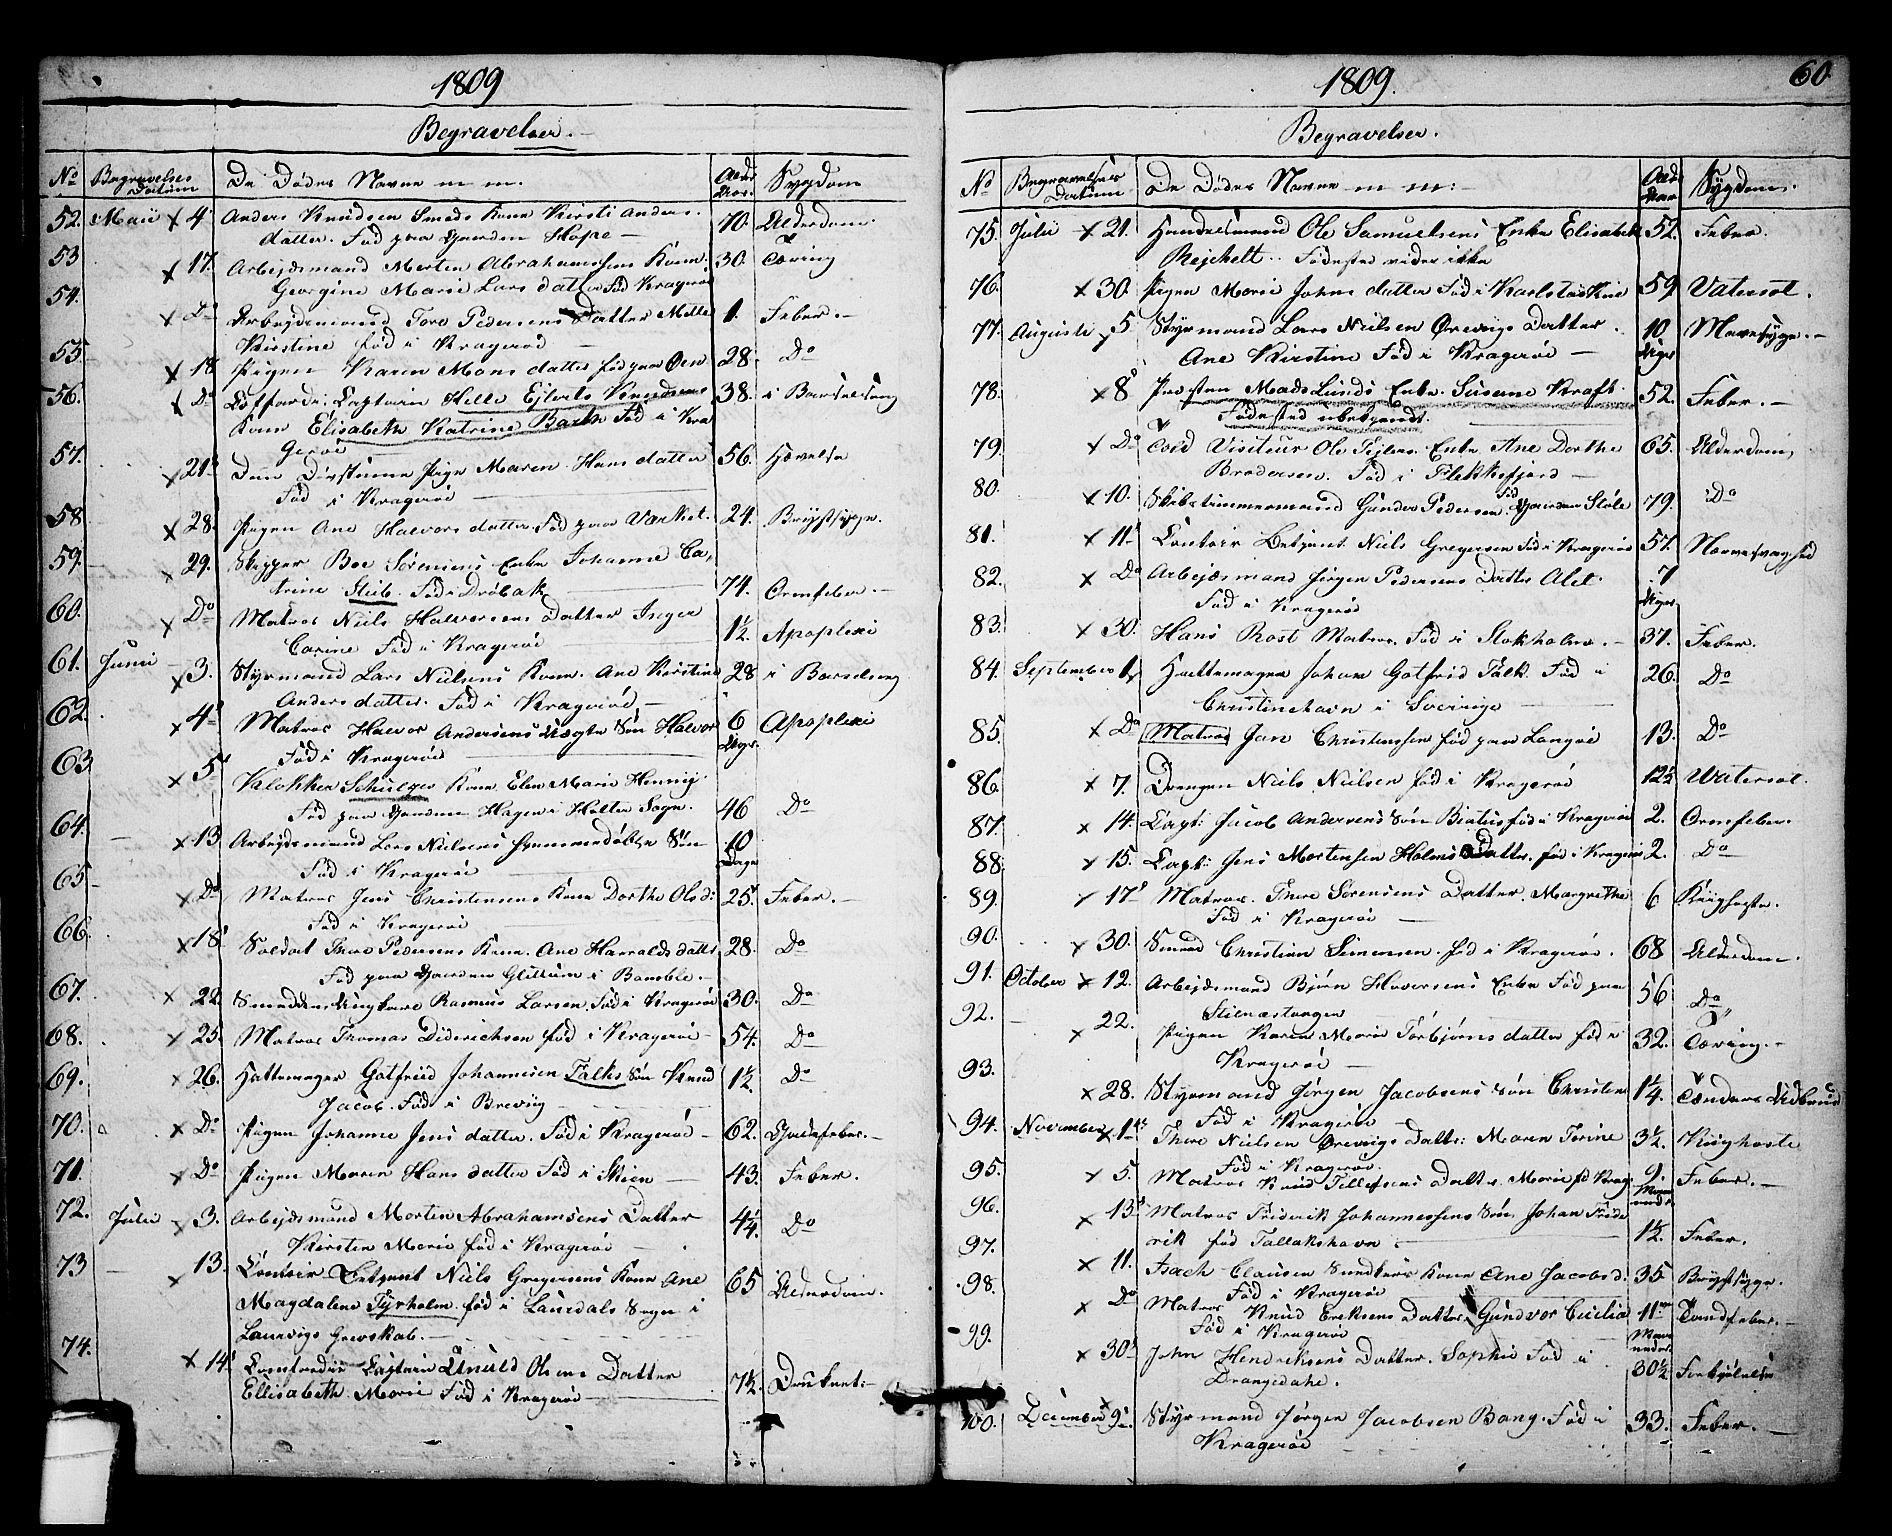 1809
Begravelser.
No Begravelses Datum De Dødes Navne m m. Alder Aar. Sygdom
52. Maii x 4. Anders Knudsen Smeds Kone Kirsti Anders- 70. Alderdom.
datter. Fød paa Gaarden Hope
53 x 17. Arbejdsmand Morten Abrahamsens Kone 30. Tæring
Georgine Marie Lars datter Fød Kragerøe
54. x Do Arbeydsmand Tore Pedersens Datter Mette 1. Feber.
Kirstine fød i Kragerøe
55 x 18 Pigen Karen Mons datter fød paa Øen 28. Do
56. x Do Coffardi Captain Helle Ejlerts Knudsens 38. i Barselseng
Kone Elisabeth Katrine Barth Fød i Kra
Gerøe
57. x 21. Døvstumme Pige Maren Hans datter 56. Hævelse
Fød i Kragerøe
58 x 28. Pigen Ane Halvors datter. Fød paa Værket. 24. Brystsyge.
59. x 29. Skipper Boe Sørensens Enke Johanne Ca-
trine Stub. Fød i Drøbak 74. Ormfeber.
60. x Do Matros Niels Halvorsens Datter Inger
Carine Fød i Kragerøe 1½. Apoplexi
61. Junii x 3. Styrmand Lars Nielsens Kone. Ane Kirstine 28 i Barselseng
Anders datter. Fød i Kragerøe
62. x 4. Matros Halvor Andersens Uægte Søn Halvor 6 Uger Apoplexi
Fød i Kragerøe
63 x 5. Valokker Schulzes Kone Elen Marie Hennig.
Fød paa Gaarden Hagen i Holter Sogn. 46 Do
64. x 13 Arbeydsmand Lars Nielsens hjemmedøbte Søn 10 Dage
Fød i Kragerøe
65 x Do Matros Jens Christensens Kone Dorthe Olsd: 25. Feber.
Fød i Kragerøe
66. x 18 Soldat Thor Pedersens Kone. Ane Haralds datter 28. Do
Fød paa Gaarden Glittum i Bamble.
67. x 22. Smeddens Ungkarl Rasmus Larsen. Fød i Kragerøe 30. Do
68. x 25. Matros Thomas Diderichsen fød i Kragerøe 54. Do
69. x 26. Hattemager Gotfried Johannesen Falks Søn Knud 1½. Do
Jacob. Fød i Brevig
70. x Do Pigen Johanne Jens datter. Fød i Kragerøe 62. Galdefeber.
71. x Do Pigen Maren Hans datter Fød i Skien 43. Feber.
72. Julii x 3. Arbejdsmand Morten Abrahamsens Datter 4¼. Do
Kirsten Marie fød i Kragerøe
73 x 13. Contoir Betjent Niels Gregersens Kone Ane 65 Alderdom.
Magdalene Tyrholm fød i Laurdals Sogn i
Laurvigs Grevskab.
74. x 14. Captain Ols Datter
Ellisabeth Marie Fød i Kragerøe 7½. Druknet.
1809. 60
Begravelser.
No Begravelses Datum De Dødes Navne m m: Alder Aar Sygdom.
75. Julii x 21. Handelsmand Ole Samuelsens Enke Elisabeth 52. Feber.
Rejchelt. Fødested vides ikke
76. x 30. Pigen Marie Johns datter Fød i Karlstad 59 Vatersot.
77. Augusti x 5. Styrmand Lars Nielsen Ørevigs Datter. 10. Uger Mavesyge.
Ane Kirstine Fød i Kragerøe
78. x 8. Præsten Mads Lunds Enke Susanne Kraft 52. Feber.
Fødested ubekjendt.
79. x Do Told Visiteur Ole Fejlers Enke Ane Dorthe 65. Alderdom,
Brodersen. Fød i Flekkefjord
80. x 10. Skibstimmermand Gunder Pedersen Fød Gaarden Støle 79. Do
81. x 11. Contoir Betjent Niels Gregersen Fød i Kragerøe 57. Nervesvaghed
82. x Do Arbejdsmand Jørgen Pedersens Datter Alet. 7 Uger
Fød i Kragerøe
83. x 30. Hans Rost Matros. Fød i Stokholm. 37. Feber.
84. September 1. x Hattemager Johan Gotfrid Falk Fød i 26. Do
Christinehavn i Sverrige
85. x Do Matros Jan Christensen fød paa Langøe 13. Do
86 x 7. Drengen Niels Nielsen fød i Kragerøe 12½ Watersot.
87. x 14. Capt: Jacob Andersens Søn Biatus fød i Kragerøe 2. Ormfeber.
88. x 15. Capt: Jens Mortensen Holms Datter. fød i Kragerøe 2. Do
89. x 17 Matros. Thore Sørensens Datter. Margrethe 6 Kiighoste.
Fød i Kragerøe
90. x 30. Smed Christian Simensen. fød i Kragerøe. 68 Alderdom.
91. October x 12. Arbejdsmand Bjørn Haversens Enke Fød paa 56 Do
Stilnæstangen
92. x 22. Pigen Karen Marie Torbjørns datter fød i 32. Tæring.
Kragerøe
93. x 28. Styrmand Jørgen Jacobsens Søn Christen 1¼. Tænders Udbrud
Fød i Kragerøe
94. November x 1. Thore Nielsen Ørevigs Datt: Maren Torine 3½. Kiighoste
Fød i Kragerøe.
95. x 5. Matros Knud Tellefsens Datter. Marie fød Krag: 9. Maaneder Feber.
96. x 13. Matros Friderik Johannessens Søn Johan Fride
rik fød Tallakshavn. 1½. Feber.
97. x 11. Isach Clausen Sundkers Kone Ane Jacobsd: 35. Brystsyge.
Fød i Kragerøe
98. x Do Matros Knud Eriksens Datter Gundvor Cecilia 11 Maaneder. Tandfeber.
Fød i Kragerøe
99. x 30. John Hendriksens Datter. Sophie Fød i 30½ Forkjølelse
Drangedahl.
100. December x 9. Styrmand Jørgen Jacobsen Bang. Fød i 33. Feber.
Kragerøe